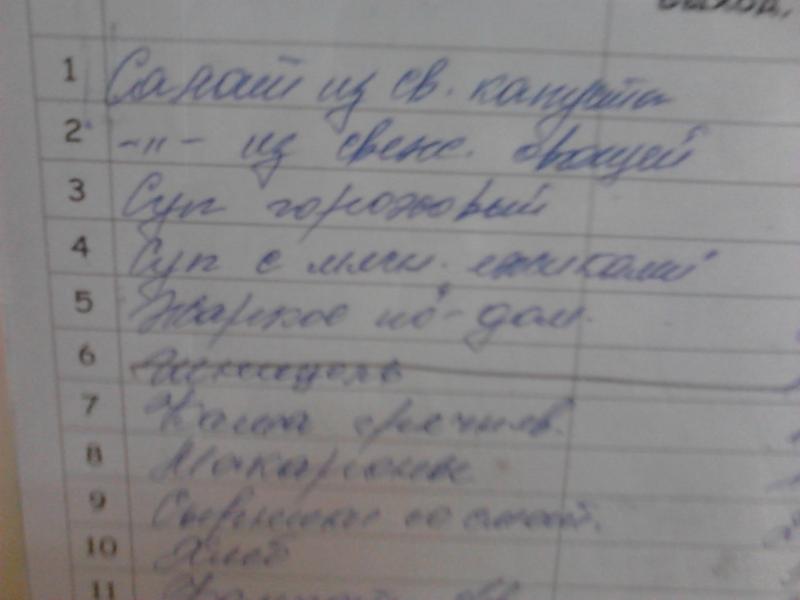 выход.
1 Салат из св. капусты
2 -"- из свеж. овощей
3 Суп гороховый
4 Суп с мясн. ежиками
5 Жаркое по-дом.
6 шницель
7 Каша гречнев.
8 Макароны
9 Сырники со смет.
10 Хлеб
11